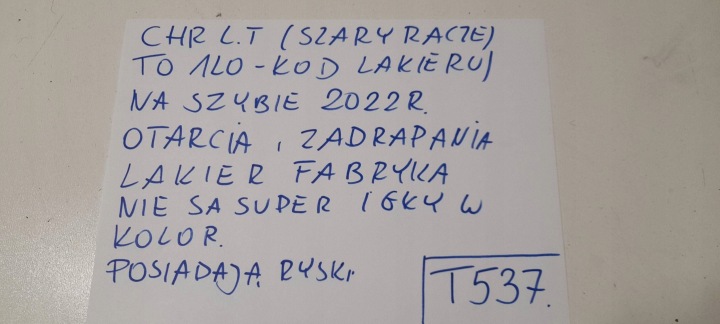 CHR L.T (SZARY RACZE)
TO 1L0 - KOD LAKIERU)
NA SZYBIE 2022R.
OTARCIA, ZADRAPANIA
LAKIER FABRYKA
NIE SA SUPER IGŁY W
KOLOR.
POSIADAJĄ. RYSKI
T537.